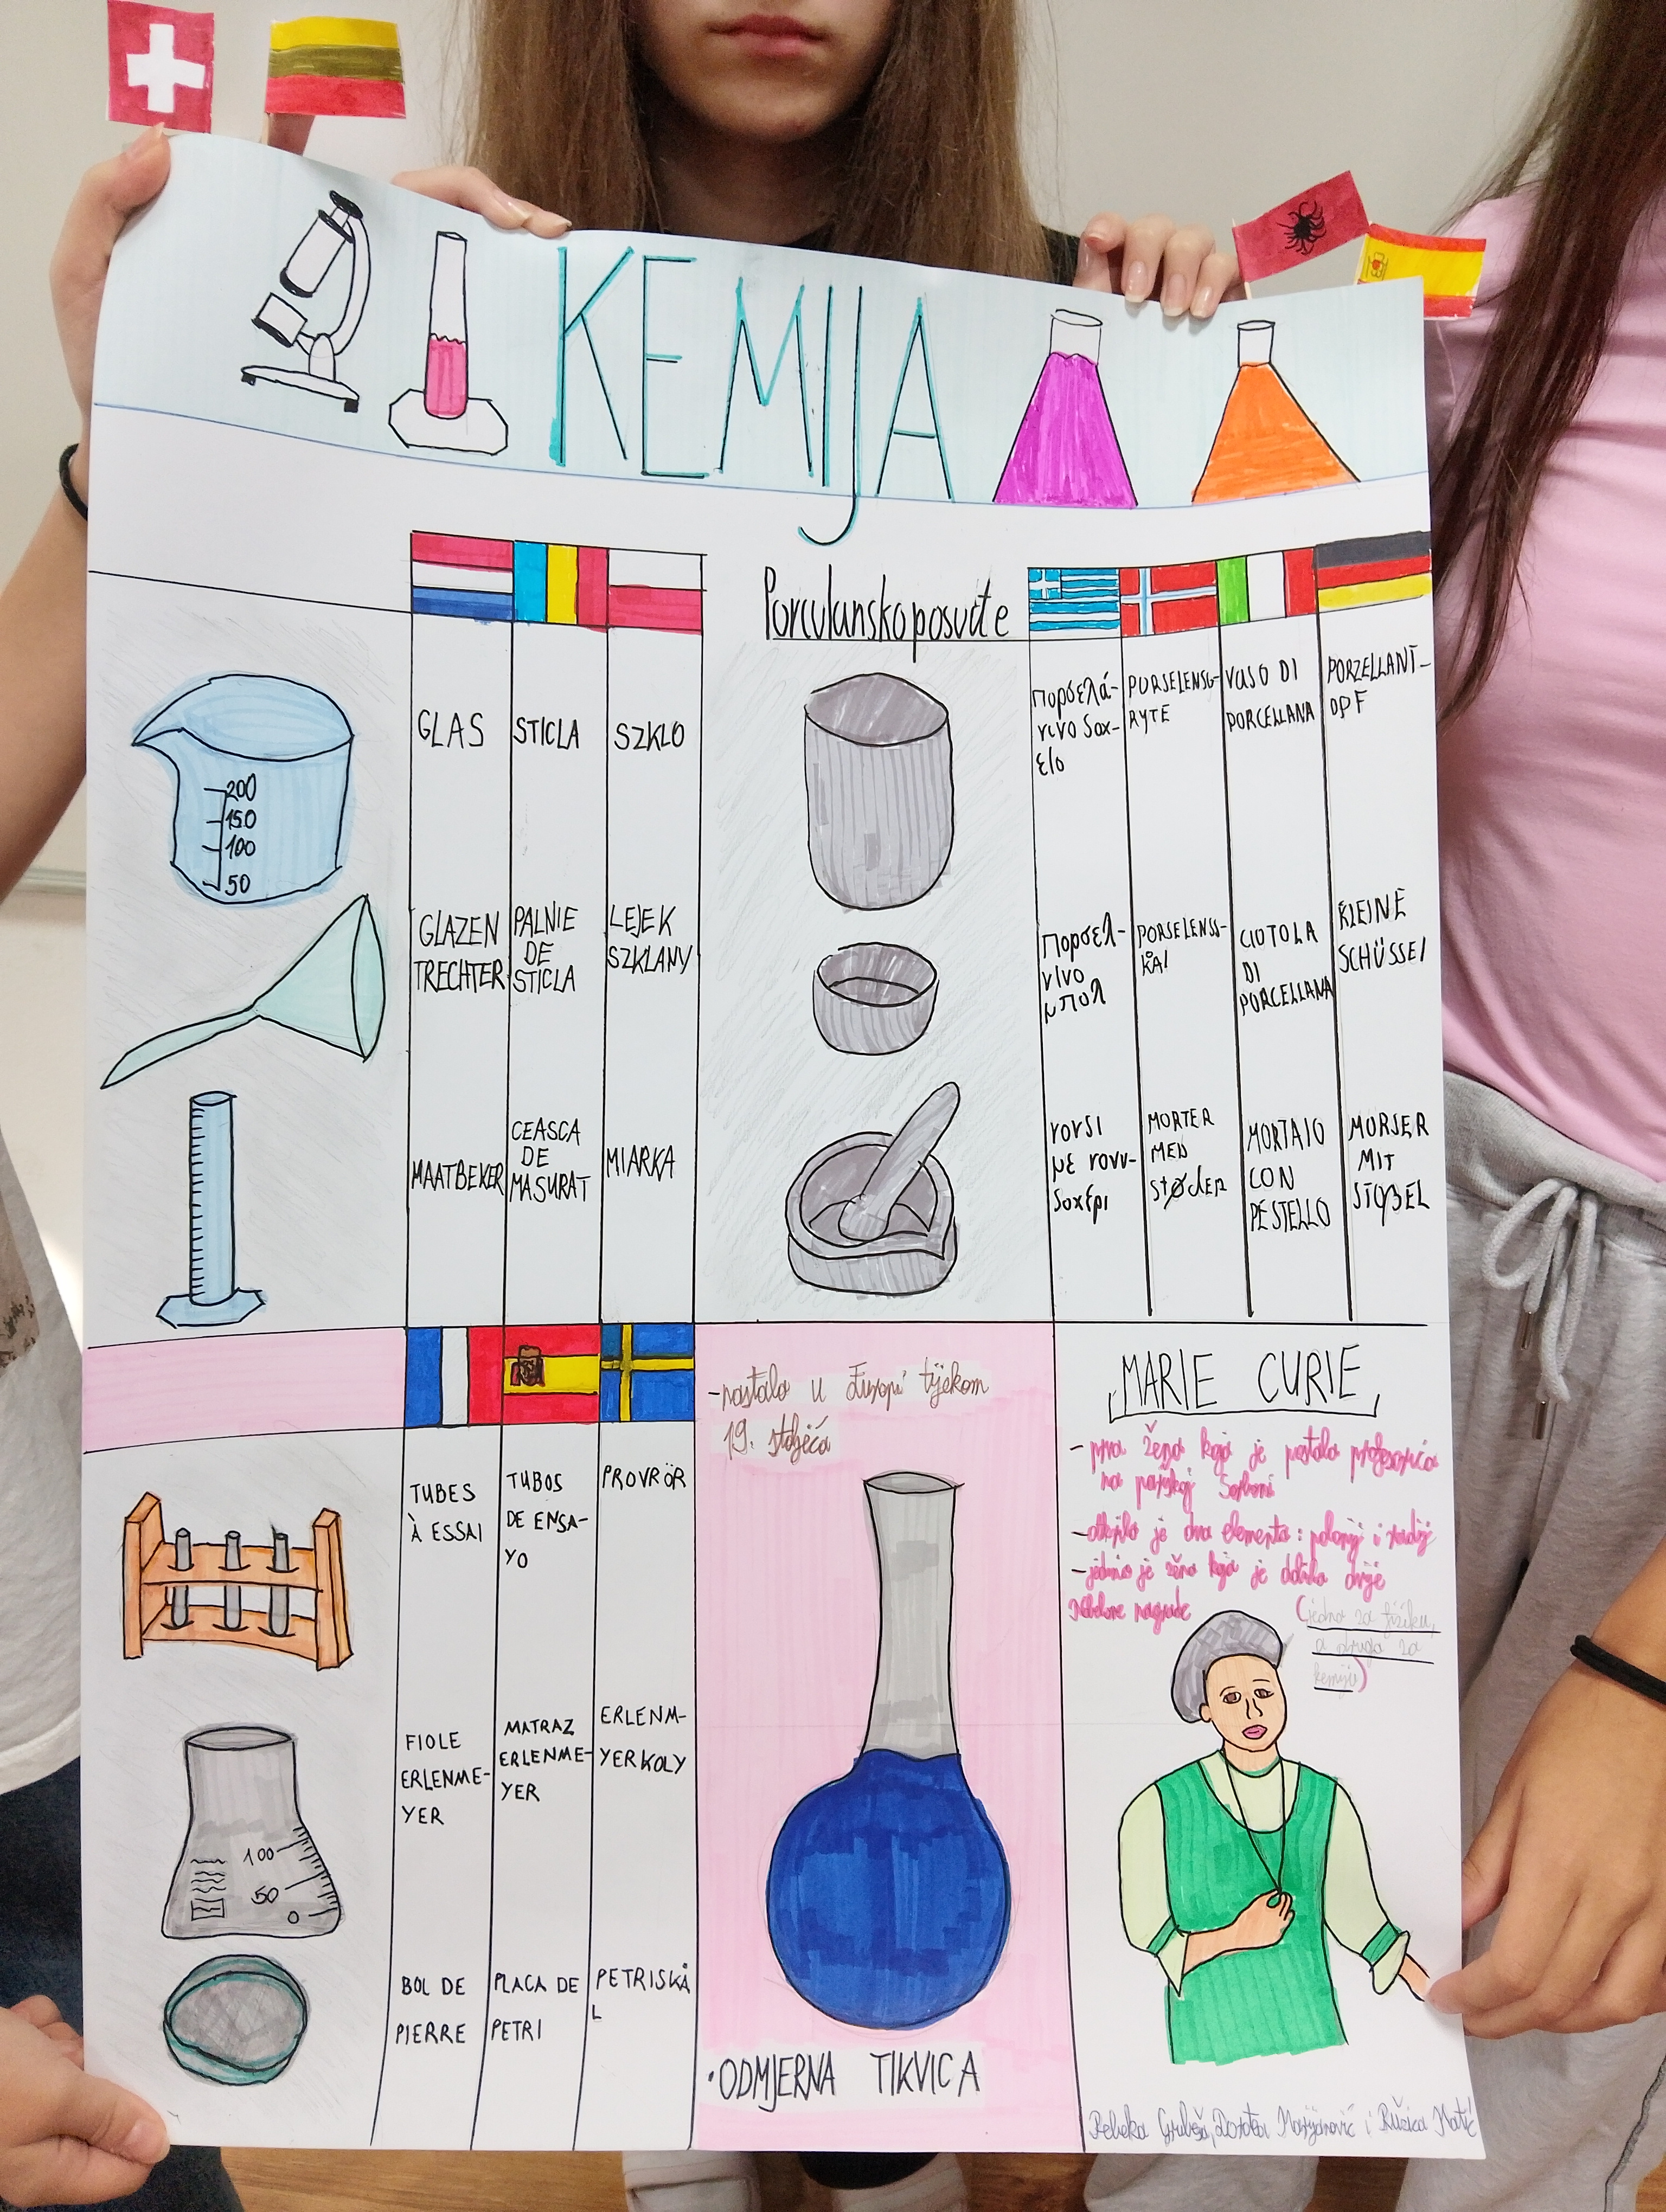 KEMIJA
200
150
100
50
GLAS
STICLA
SZKLO
GLAZEN
TRECHTER
PALNIE
DE
STICLA
LEJEK
SZKLANY
MAATBEKER
CEASCA
DE
MASURAT
MIARKA
Porculansko posuđe
πορσελά-
νινο δοχ-
είο
PORSELENSG-
RYTE
VASO DI
PORCELLANA
PORZELLANT-
OPF
πορσελ-
νινο
μπολ
PORSELENSS-
KÅl
CIOTOLA
DI
PORCELLANA
KLEINE
SCHÜSSEl
γουδί
με
MORTER
MED
stØdER
MORTAIO
CON
PESTELLO
MORSER
MIT
STOBEL
TUBES
À ESSAI
TUBOS
DE ENSA-
YO
PROVRÖR
100
50
0
FIOLE
ERLENME-
YER
MATRAZ
ERLENME-
YER
ERLENM-
YERKOLV
BOL DE
PIERRE
PLACA DE
PETRI
PETRISKÅ
L
-nastala u Europi tijekom
19. stoljeća
·ODMJERNA TIKVICA
MARIE CURIE
- prva žena koja je postala profesorica
na pariškoj Sorboni
- otkrila je dva elementa: polonij i radij
- jedina je žena koja je dobila dvije
Nobelove nagrade
(jedna za fiziku,
a druga za
kemiju)
Rebeka Grubeša, Dorotea Marijanović i Ružica Matić